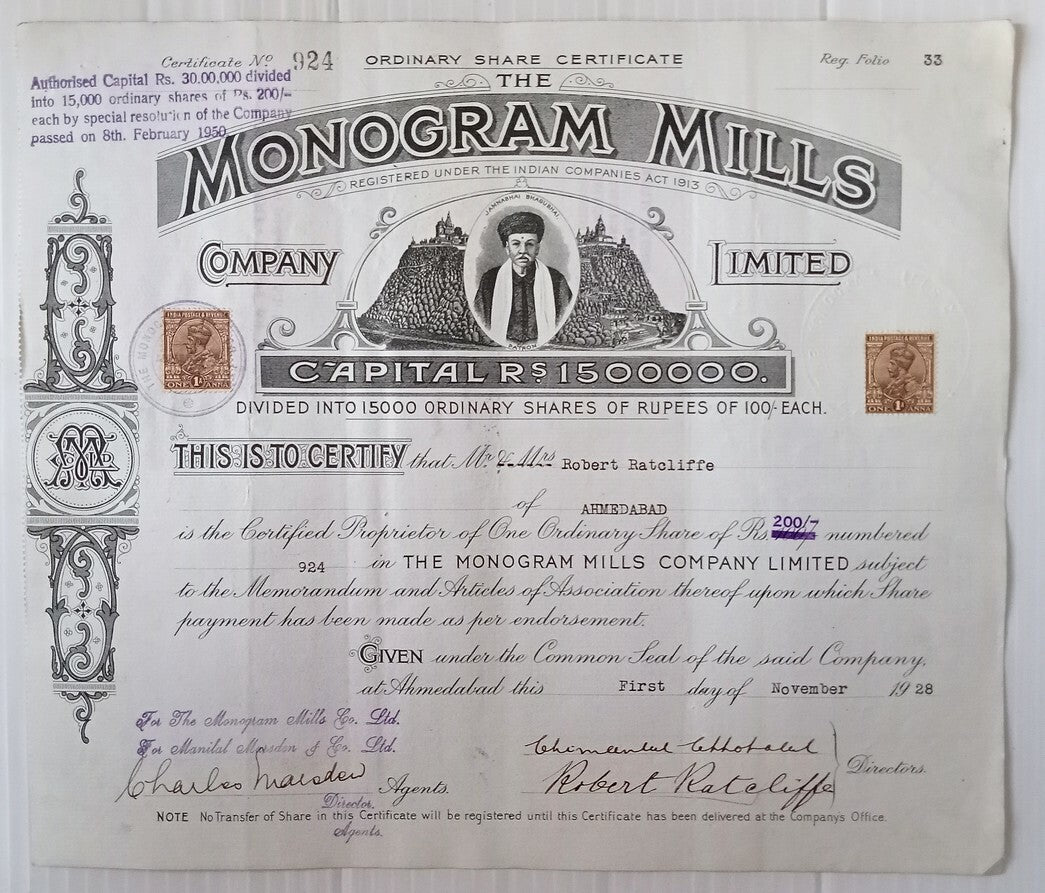 Certificate No 924
ORDINARY SHARE CERTIFICATE
Reg. Folio 33
Authorised Capital Rs. 30.00,000 divided
into 15,000 ordinary shares of Rs. 200/-
each by special resolution of the Company
passed on 8th. February 1950
THE
MONOGRAM MILLS
REGISTERED UNDER THE INDIAN COMPANIES ACT 1913
JAMNABHAI BHAGUBHAI
COMPANY LIMITED
PATRON
INDIA POSTAGE & REVENUE
ONE 1A ANNA
INDIA POSTAGE & REVENUE
ONE 1A ANNA
THE MONOG
CAPITAL RS 1500000.
DIVIDED INTO 15000 ORDINARY SHARES OF RUPEES OF 100/- EACH.
THIS IS TO CERTIFY that Mr. & Mrs Robert Ratcliffe
of AHMEDABAD
is the Certified Proprietor of One Ordinary Share of Rs. 200/- numbered
924 in THE MONOGRAM MILLS COMPANY LIMITED subject
to the Memorandum and Articles of Association thereof upon which Share
payment has been made as per endorsement.
GIVEN under the Common Seal of the said Company,
at Ahmedabad this First day of November 1928
For The Monogram Mills Co. Ltd.
For Manilal Marsden & Co. Ltd.
Charles Marsden Agents.
Director.
Chimanlal Chhotalal
Robert Ratcliffe
Directors.
NOTE No Transfer of Share in this Certificate will be registered until this Certificate has been delivered at the Company's Office.
Agents.